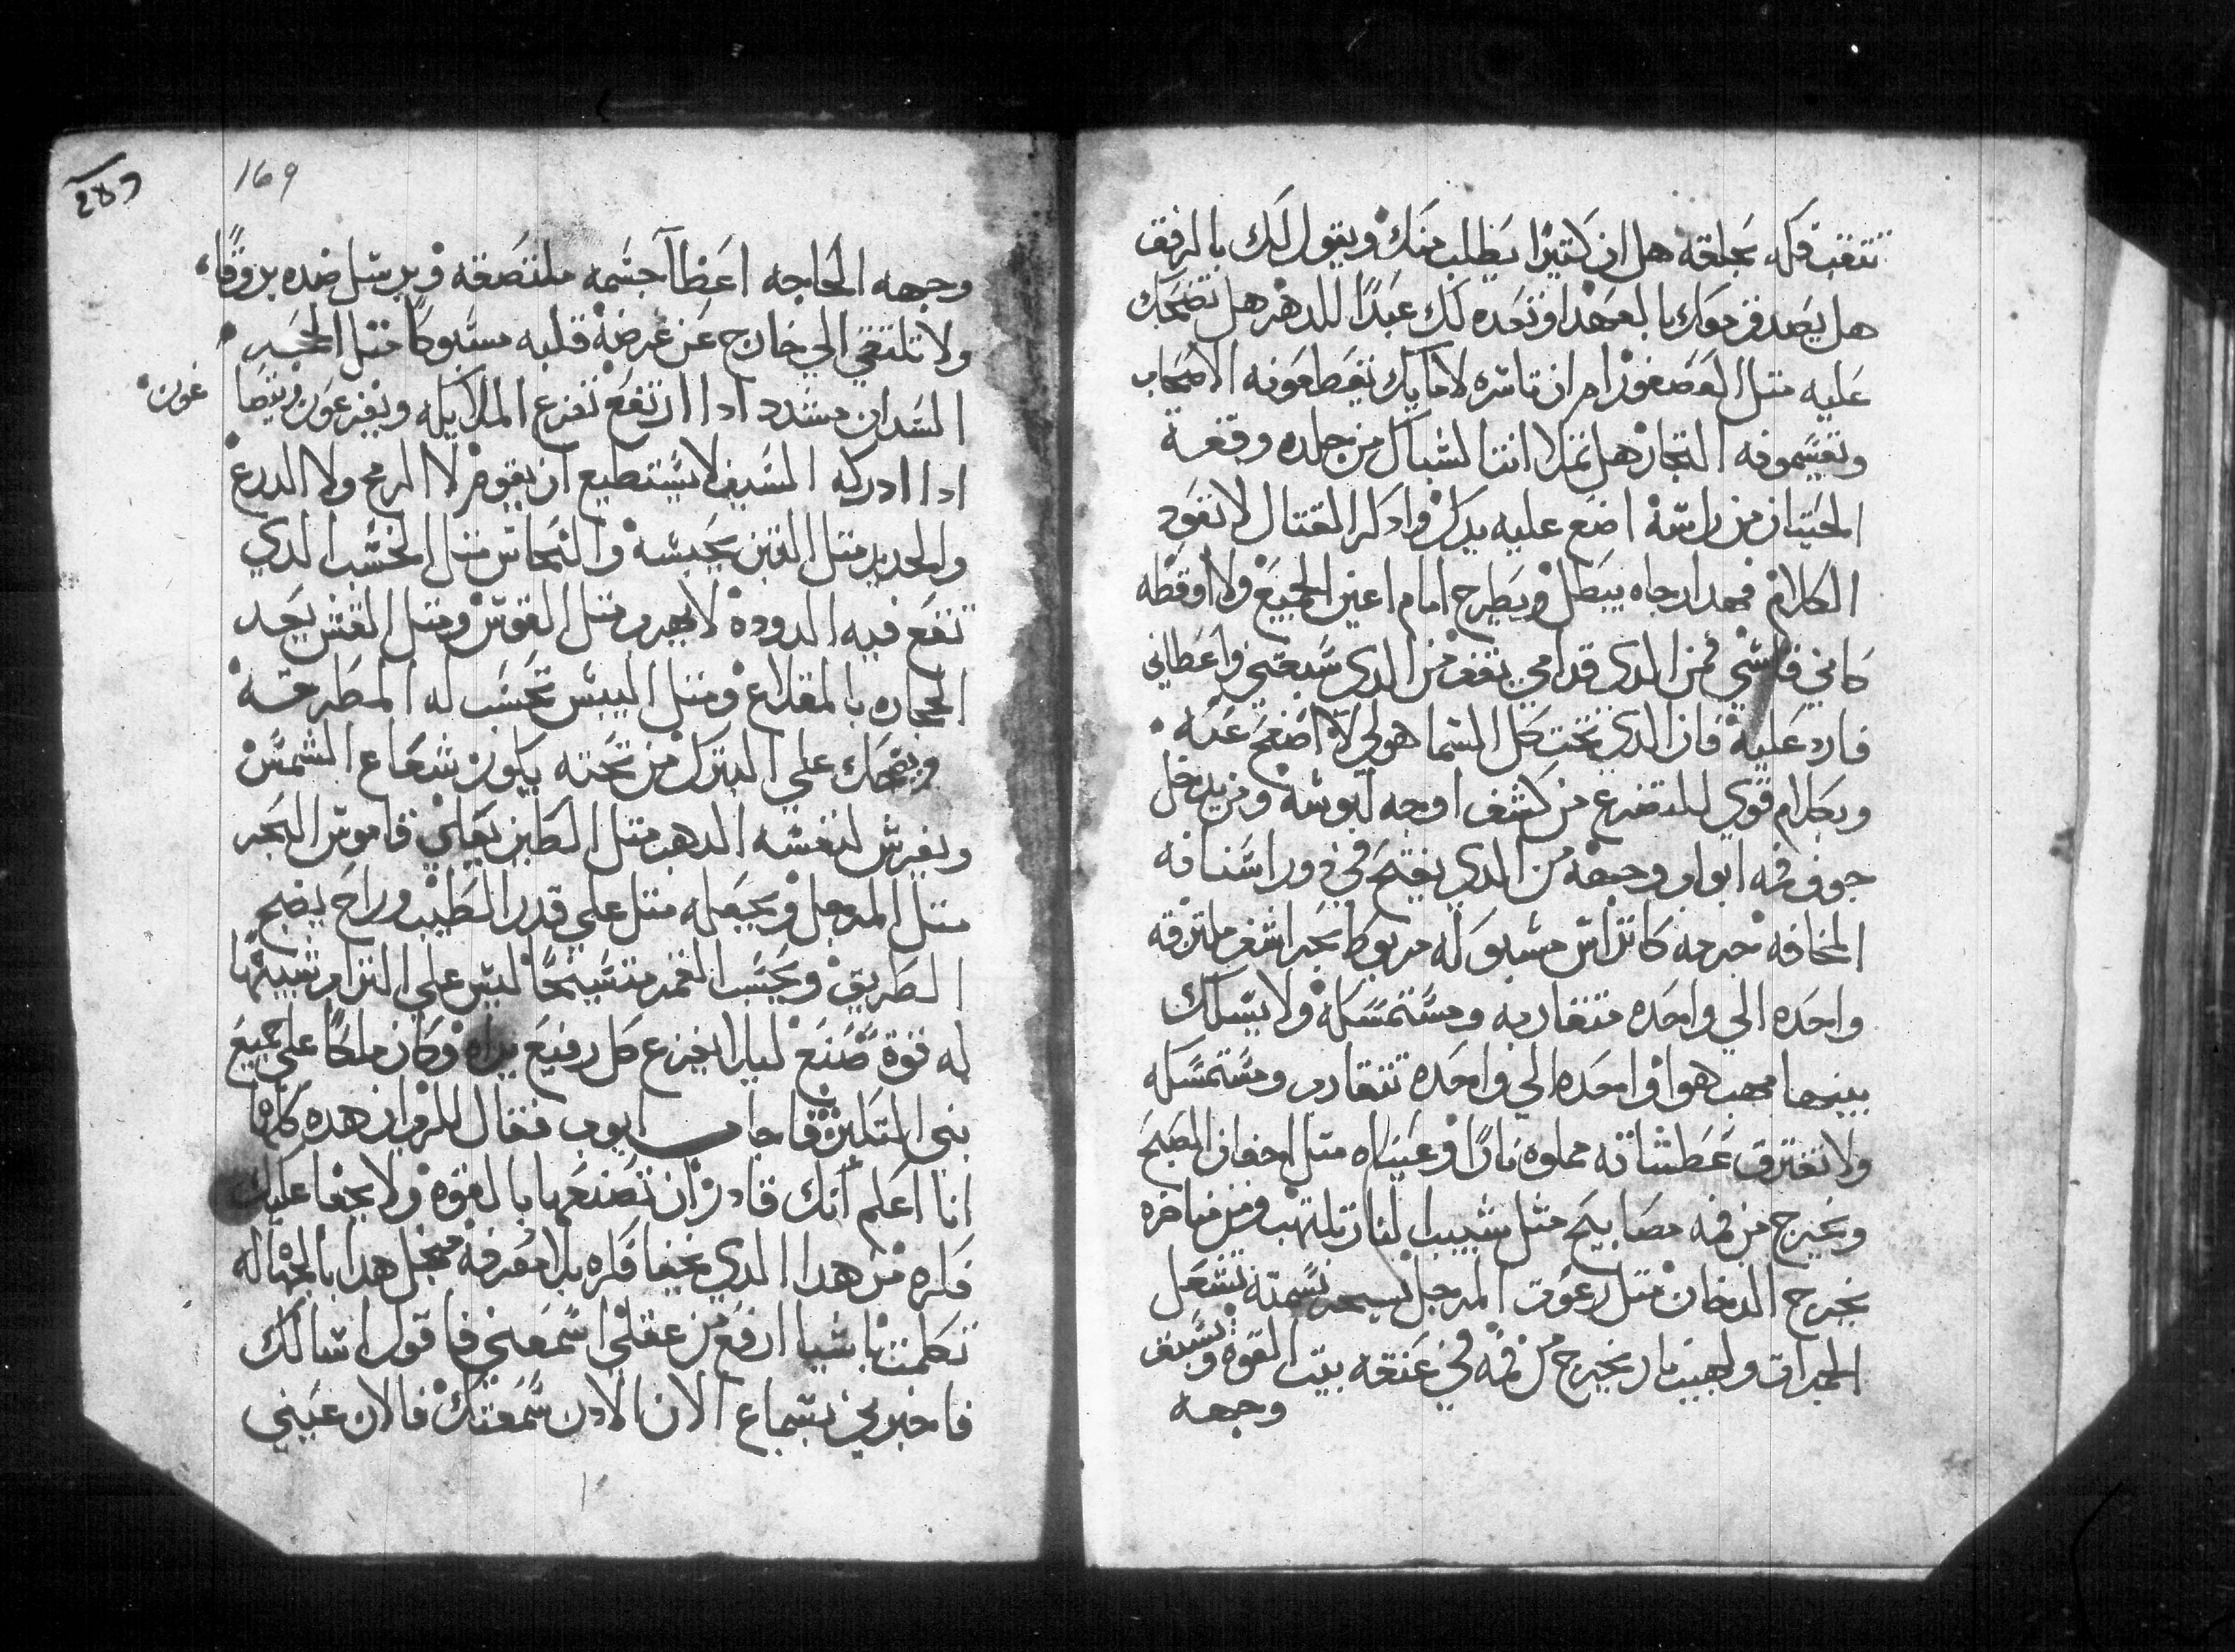 تتقب فكه بحلقه هل ان كتيرًا يطلب منك ويقول لك بالرفق
هل يصدق معك بالعهد او تعده لك عبدًا للدهر هل تضحك
عليه متل العصفور ام ان تاسره لامايك تقطعونه الاصحاب
وتقسمونه التجار هل تملا انتا لشباك من جلده وقفعة
الحيتان من راسه اضع عليه يدك واذكر القتال لا تعود
الكلام فهدا رجاه يبطل ويطرح امام اعين الجميع ولا اوقظه
كاني قاسي فمن الدي قدامي يقف من الدي سبقني واعطاني
فارد عليه فان الدي تحت كل السما هو لي لا اصفح عنه
وبكلام قوي للتضرع من كشف اوجه لبوسه ومن يدخل
جوف فمه ابواب وجهه من الدي يفتح في دور اسنانه
المخافه جرمه كاتراس مسبوكه مربوط بحراشف ملتزقه
واحده الي واحده متقاربه ومستمسكه ولا يسلك
بينهما مهب هوا واحده الي واحده تتقارب ومستمسكه
ولا تفترق عطساته مملوه نارًا وعيناه متل اجفان الصبح
ويخرج من فمه مصابيح متل شبيب النار تلتهب ومن مناخره
يخرج الدخان متل رغوت المرجل نسمته تشعل
الجمرات ولهيب نار يخرج من فمه في عنقه بيت القوة ويسبق
وجهه
169
287
وجهه الحاجه اعظا جسمه ملتصقه ويرسل ضده بروقًا
ولا تلتقي الي خارج عن غرضه قلبه مسبوكًا متل الحجر
السدان مشدد اذا ارتفع تفزع الملايكه ويفزعون ويتضا
غون
ادا ادركه السيف لا يستطيع ان يقوم لا الرمح ولا الدرع
والحديد متل التبن يحبسه والنحاس متل الخشب الدي
تقع فيه الدوده لا يهرب متل القوس ومتل القش يعد
الحجاره بالمقلاع ومتل اليبس تحسب له المطرقه
ويضحك علي النيزك من تحته يكون شعاع الشمس
ويفرش لنفسه الدهب متل الطين يغلي قاموس البحر
متل المرجل ويجعله متل علي قدر الطيب وراح يضج
الطريق ويحسب الغمر متسيخًا ليس علي التراب شبيهًا
له قوة صنع ليلا يفزع كل رفيع يراه وكان ملكًا علي جميع
بني المتكبرين فاجاب ايوب فقال للرب ان هده كلها
انا اعلم انك قادر ان تصنعها بالقوه ولا يخفا عليك
فكره من هدا الدي يخفيا فكره بلا معرفه مبجل هدا بالجهاله
تكلمت باشيا ارفع من عقلي اسمعني فاقول اسالك
فاخبرني بسماع الان الادن سمعتك فالان عيني